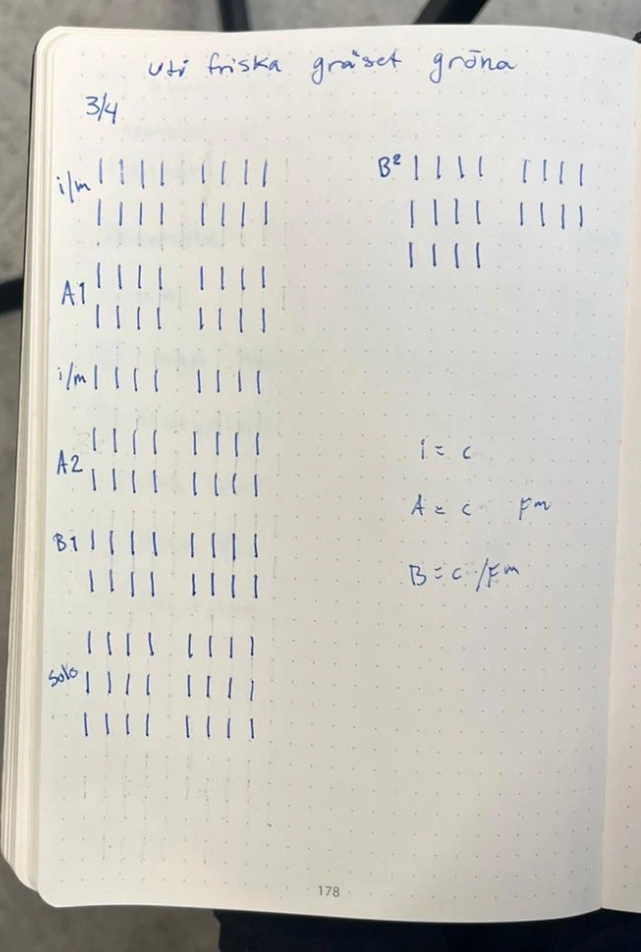 Uti friska gräset gröna
3/4
i/m | | | | | | | |
| | | | | | | |
A1 | | | | | | | |
| | | | | | | |
i/m | | | | | | | |
A2 | | | | | | | |
| | | | | | | |
B1 | | | | | | | |
| | | | | | | |
| | | | | | | |
Solo | | | | | | | |
| | | | | | | |
B² | | | | | | | |
| | | | | | | |
| | | |
i = c
A = c Fm
B = c /Fm
178